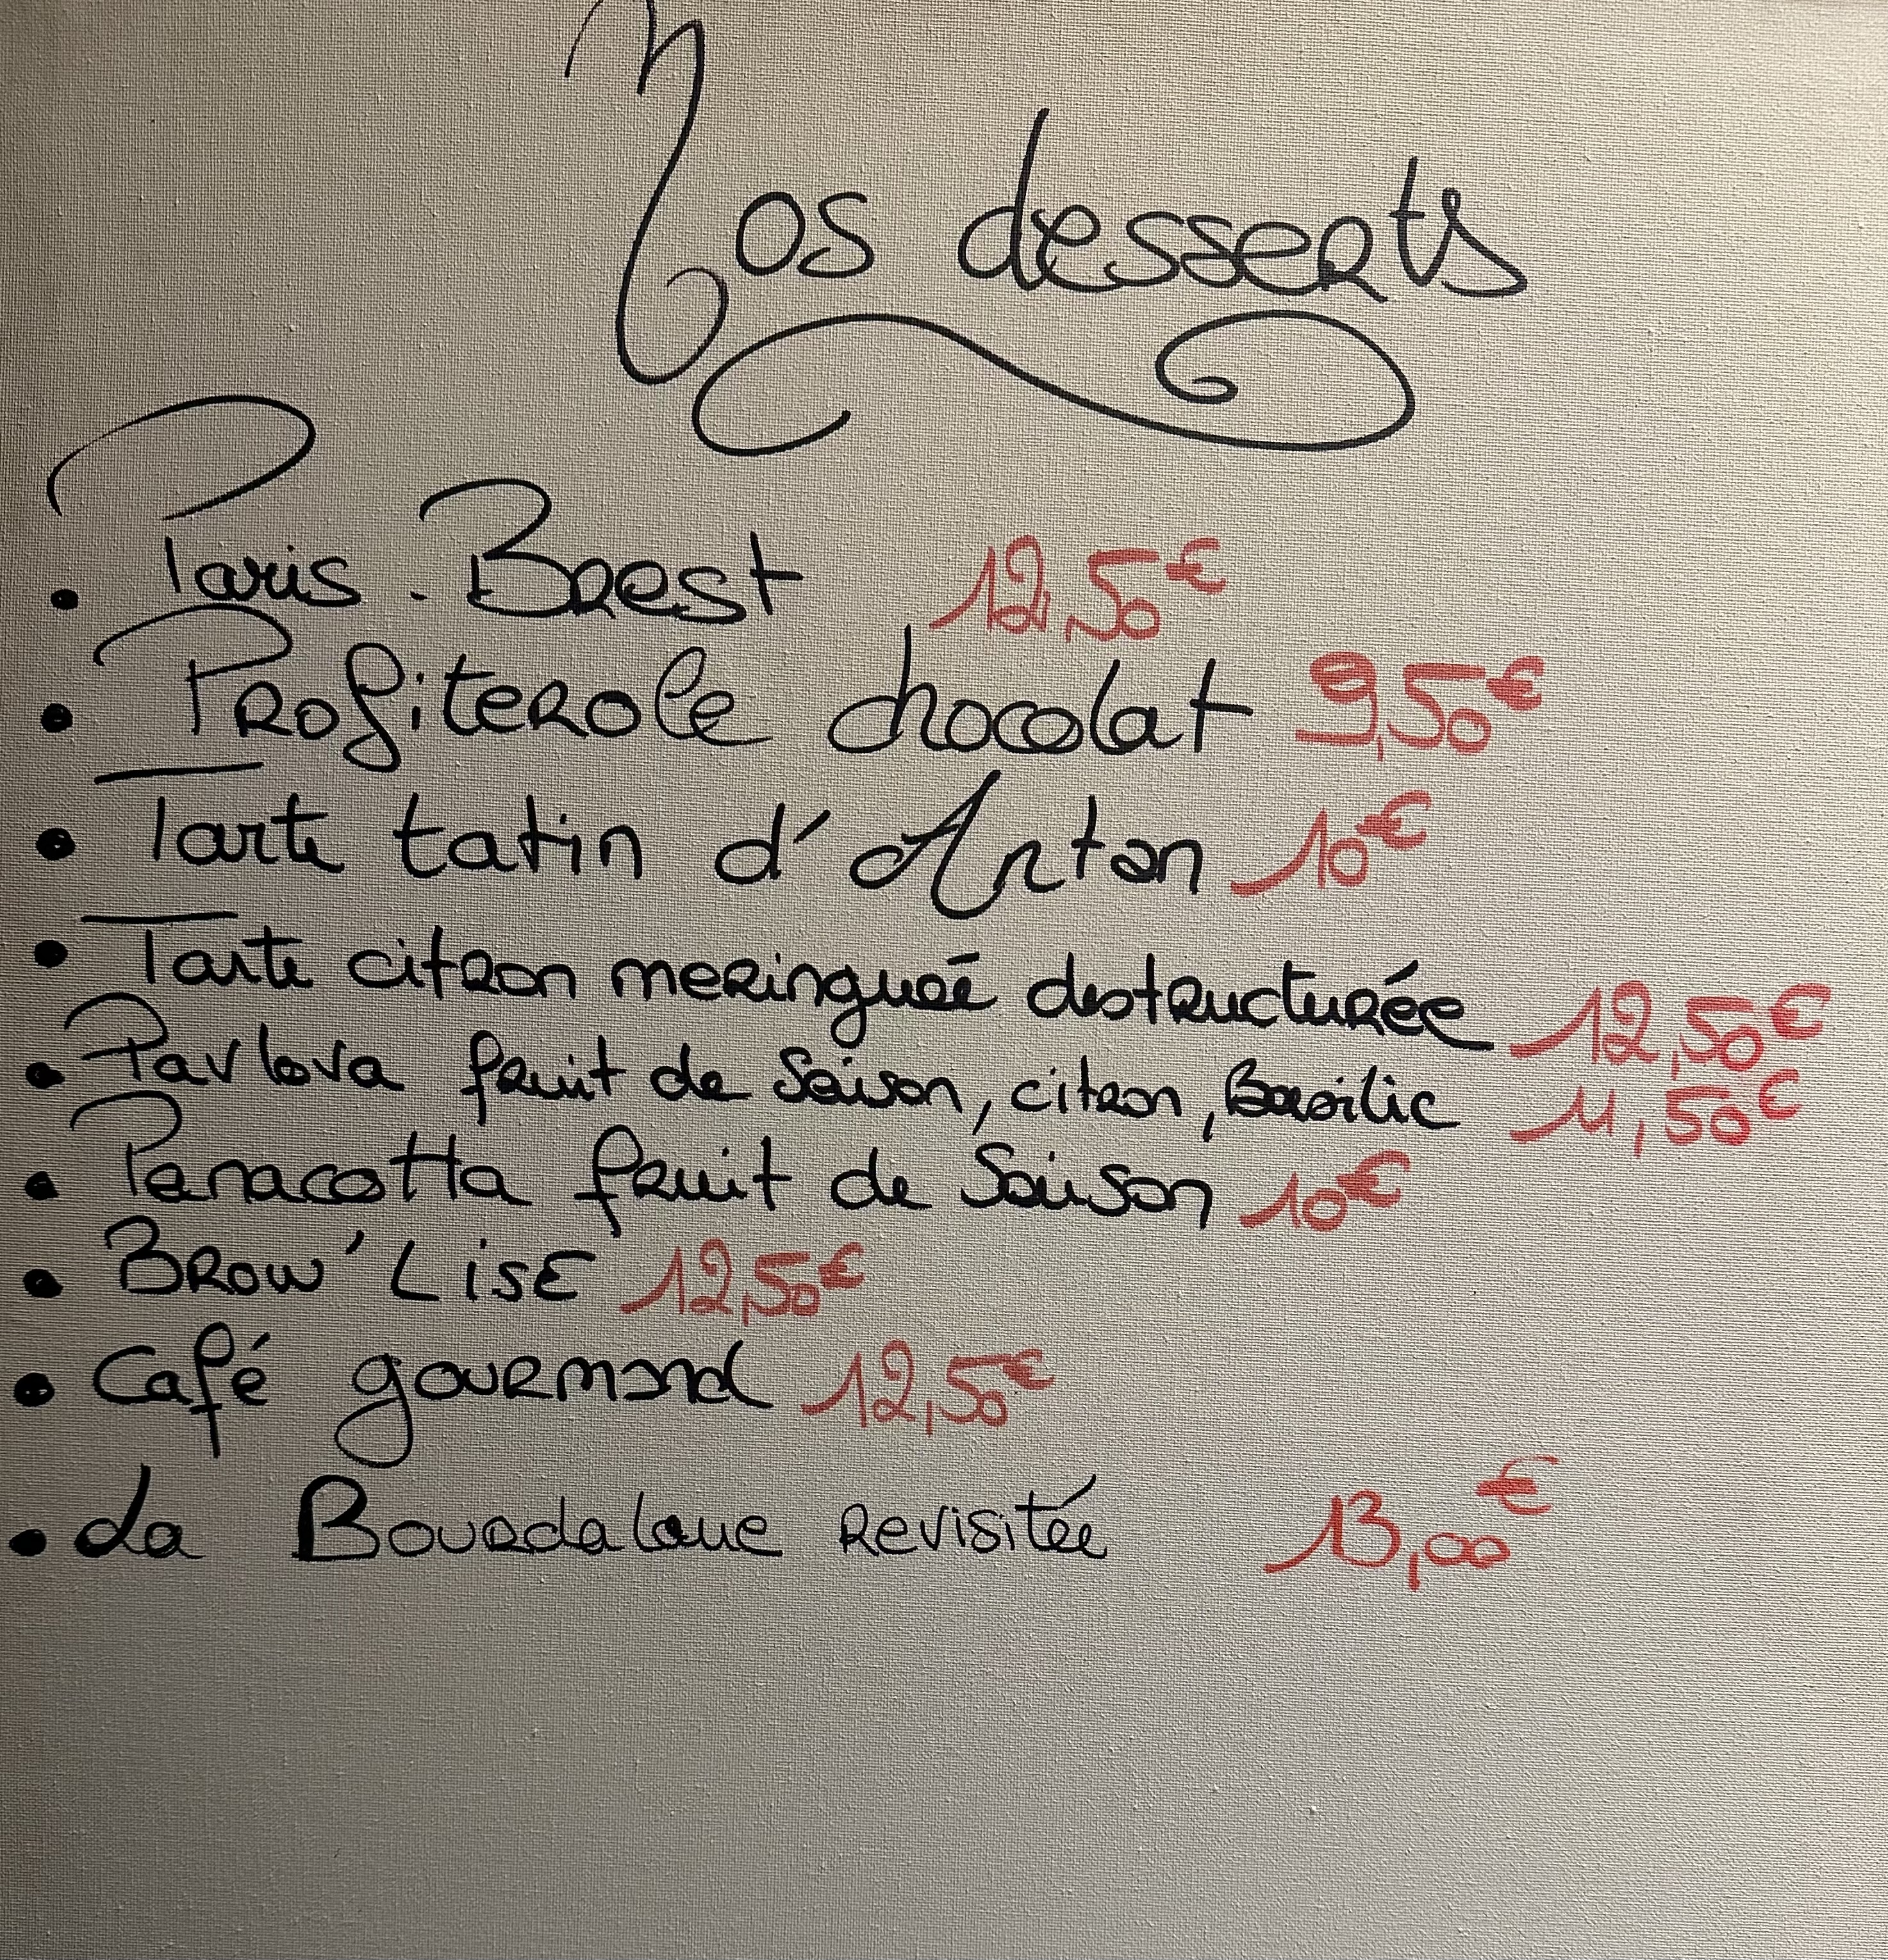 Nos desserts
• Paris-Brest 12,50€
• Profiterole chocolat 9,50€
• Tarte tatin d'Anton 10€
• Tarte citron meringuée destructurée 12,50€
• Pavlova fruit de Saison, citron, Basilic 11,50€
• Panacotta fruit de Saison 10€
• Brow'Lise 12,50€
• Café gourmand 12,50€
• La Bourdaloue revisitée 13,00€